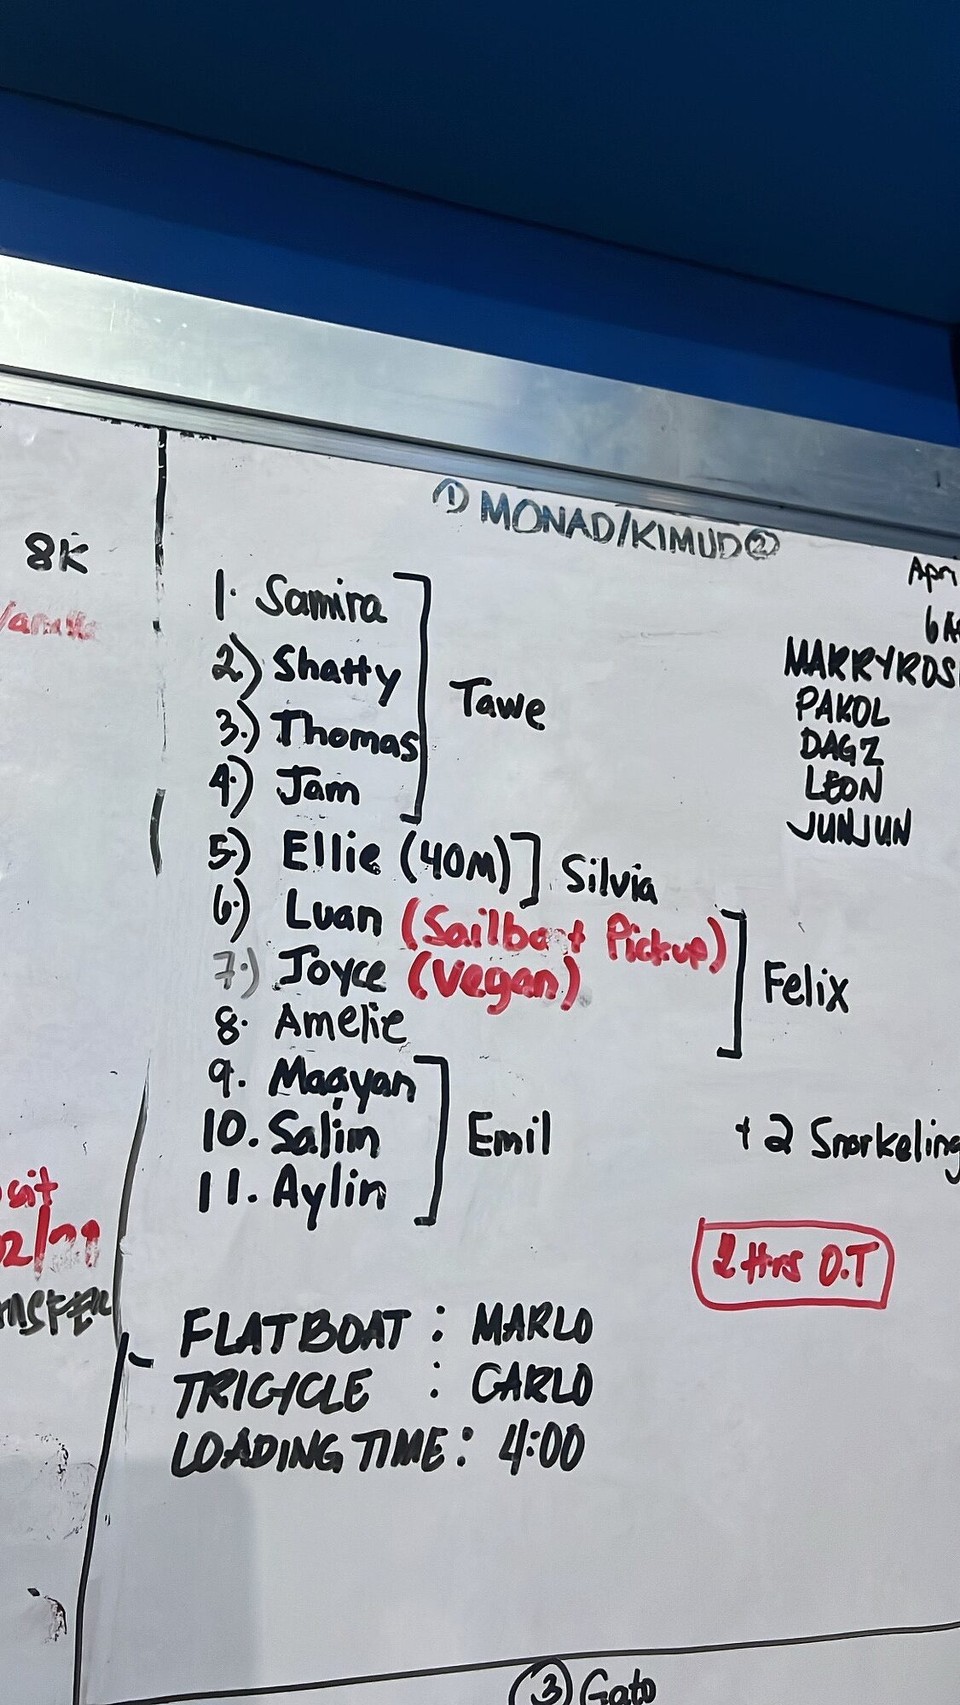 ① MONAD/KIMUD②
8K
1. Samira
2.) Shatty
3.) Thomas
4.) Jam
Tawe
5.) Ellie (40M)
Silvia
6.) Luan (Sailboat Pickup)
7.) Joyce (Vegan)
8. Amelie
Felix
9. Maayan
10. Salim
11. Aylin
Emil
MARRYROS
PAKOL
DAGZ
LEON
JUNJUN
+2 Snorkeling
2 Hrs O.T
FLATBOAT : MARLO
TRICYCLE : CARLO
LOADING TIME : 4:00
③ Gato